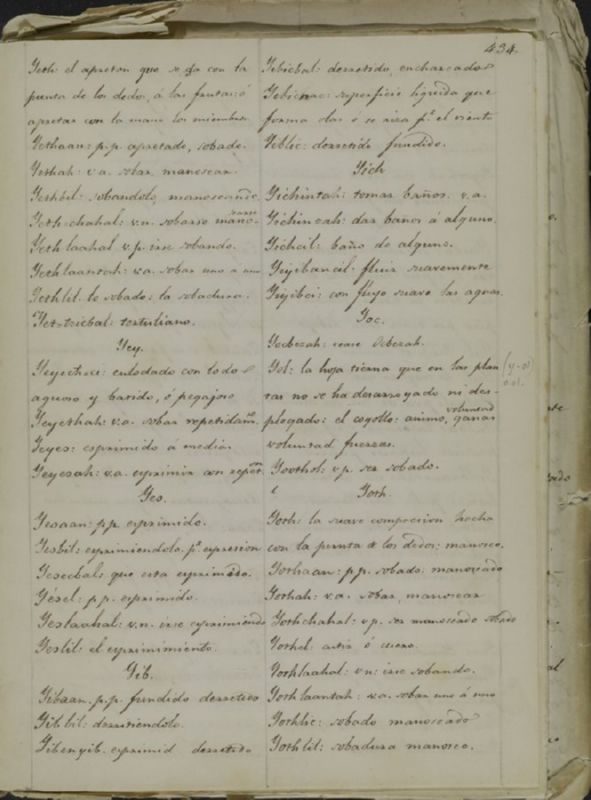 434.
Yeth: el apreton que se da con la
punta de los dedos, á las frutas: ó
apretar con la mano los miembros.
Yethaan: p.p. apretado, sobado.
Yethah: v.a. sobar, manosear.
Yethbil: sobandolo, manoseando.
Yeth-chahal: v.n. sobarse mano-
searse
Yethlaahal v.p. irse sobando.
Yethlaantah: v.a. sobar uno a uno
Yethlil. lo sobado: la sobadura.
Yet-tziebal: tertuliano.
Yey.
enlodado con todo
aguoso y batido, ó pegajoso
Yeyethah: v.a. sobar repetidamte.
Yeyes: esprimido á medias.
Yeyesah: v.a. esprimir con
Yes.
Yesaan: p.p. esprimido.
Yesbil: esprimiendolo. pa. espresion
que esta esprimido.
Yesel: p.p. esprimido.
Yeslaahal: v.n. irse esprimiendo
Yeslil: el esprimimiento.
Yib.
Yibaan. p.p. fundido derretido
Yibbil: derritiendolo.
Yibenyib. esprimid derretido
Yibicbal: derretido, encharcado
superficie liquida que
forma olas ó se riza pr. el viento
Yiblic: derretido fundido.
Yich
Yichintah: tomar baños. v.a.
Yichinzah: dar baños á alguno.
Yichcil: baño de alguno.
Yiyibancil: fluir suavemente
Yiyibci: con flujo suave las aguas.
Yoc.
Yocbezah. véase Ocbezah.
Yol: la hoja tierna que en las plan
(y-ol)
o-ol.
tas no se ha desarroyado ni des-
plegado: el cogollo: animo, ganas
voluntad
voluntad fuerzas.
v.p. ser sobado.
Yoth.
Yoth: la suave compresion hecha
con la punta de los dedos: manoseo.
Yothaan: p.p. sobado: manoseado
Yothah: v.a. sobar, manosear
Yothchahal: v.p. ser manoseado sobado
Yothel: cutis ó cuero.
Yothlaahal: v.n: irse sobando.
Yothlaantah: v.a. sobar uno á uno
Yothlic: sobado manoseado
Yothlil: sobadura manoseo.